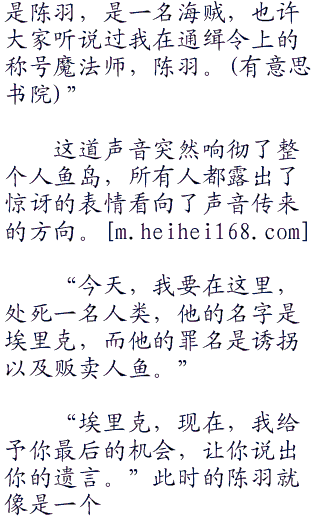 是陈羽，是一名海贼，也许
大家听说过我在通缉令上的
称号魔法师，陈羽。(有意思
书院)”
这道声音突然响彻了整
个人鱼岛，所有人都露出了
惊讶的表情看向了声音传来
的方向。[m.heihei168.com]
“今天，我要在这里，
处死一名人类，他的名字是
埃里克，而他的罪名是诱拐
以及贩卖人鱼。”
“埃里克，现在，我给
予你最后的机会，让你说出
你的遗言。”此时的陈羽就
像是一个